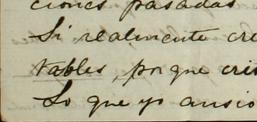 ciones pasadas
Si realmente cre
tables porque cris
Lo que yo ansio